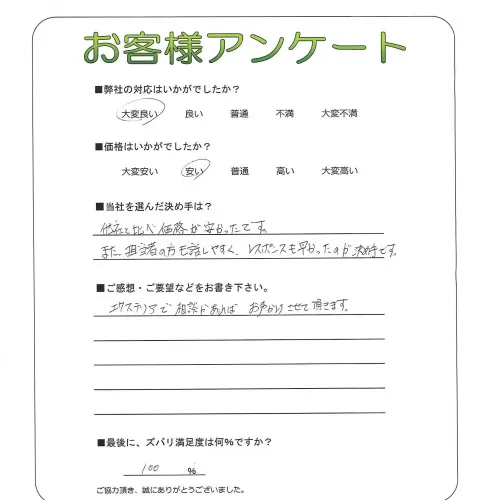 お客様アンケート
■弊社の対応はいかがでしたか？
大変良い 良い 普通 不満 大変不満
■価格はいかがでしたか？
大変安い 安い 普通 高い 大変高い
■当社を選んだ決め手は？
他社と比べ価格が安かったです。
また、担当者の方も話しやすく、レスポンスも早かったのが決め手です。
■ご感想・ご要望などをお書き下さい。
エクステリアで相談があれば お声かけさせて頂きます。
■最後に、ズバリ満足度は何％ですか？
100 %
ご協力頂き、誠にありがとうございました。